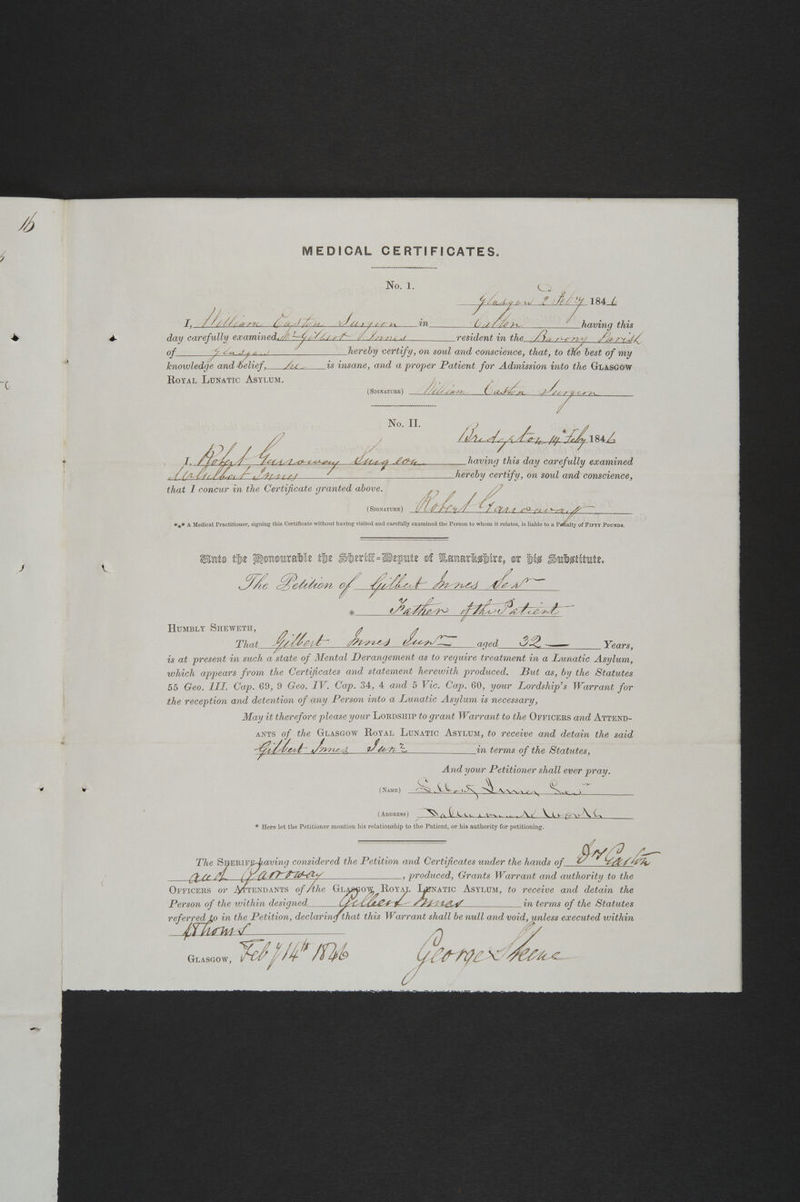 16
MEDICAL CERTIFICATES.
No. 1.
Glasgow 2 Feby 1846
I, William Caston Surgeon in Calton having this
day carefully examined Mr Gilbert Innes resident in the Barony Parish
of Glasgow hereby certify, on soul and conscience, that, to the best of my
knowledge and belief, he is insane, and a proper Patient for Admission into the GLASGOW
ROYAL LUNATIC ASYLUM.
(SIGNATURE) William Caston Surgeon
No. II.
Bridgeton 14th Feby 1846
I, Robert Garroway Surgeon having this day carefully examined
Mr Gilbert Innes hereby certify, on soul and conscience,
that I concur in the Certificate granted above.
(SIGNATURE) Robert Garroway
*** A Medical Practitioner, signing this Certificate without having visited and carefully examined the Person to whom it relates, is liable to a Penalty of FIFTY POUNDS.
Unto the Honourable the Sheriff-Depute of Lanarkshire, or his Substitute.
The Petition of Gilbert Innes Senr
* Father of the Patient
HUMBLY SHEWETH,
That Gilbert Innes Junr aged 32 Years,
is at present in such a state of Mental Derangement as to require treatment in a Lunatic Asylum,
which appears from the Certificates and statement herewith produced. But as, by the Statutes
55 Geo. III. Cap. 69, 9 Geo. IV. Cap. 34, 4 and 5 Vic. Cap. 60, your Lordship's Warrant for
the reception and detention of any Person into a Lunatic Asylum is necessary,
May it therefore please your LORDSHIP to grant Warrant to the OFFICERS and ATTEND-
ANTS of the GLASGOW ROYAL LUNATIC ASYLUM, to receive and detain the said
Gilbert Innes Junr in terms of the Statutes,
And your Petitioner shall ever pray.
(NAME) Gilbert Innes Senr
(ADDRESS) Dalmarnock
* Here let the Petitioner mention his relationship to the Patient, or his authority for petitioning.
The SHERIFF having considered the Petition and Certificates under the hands of Drs Caston
and Garroway, produced, Grants Warrant and authority to the
OFFICERS or ATTENDANTS of the GLASGOW ROYAL LUNATIC ASYLUM, to receive and detain the
Person of the within designed Gilbert Innes in terms of the Statutes
referred to in the Petition, declaring that this Warrant shall be null and void, unless executed within
GLASGOW, Feby 14th 1846 George Skene